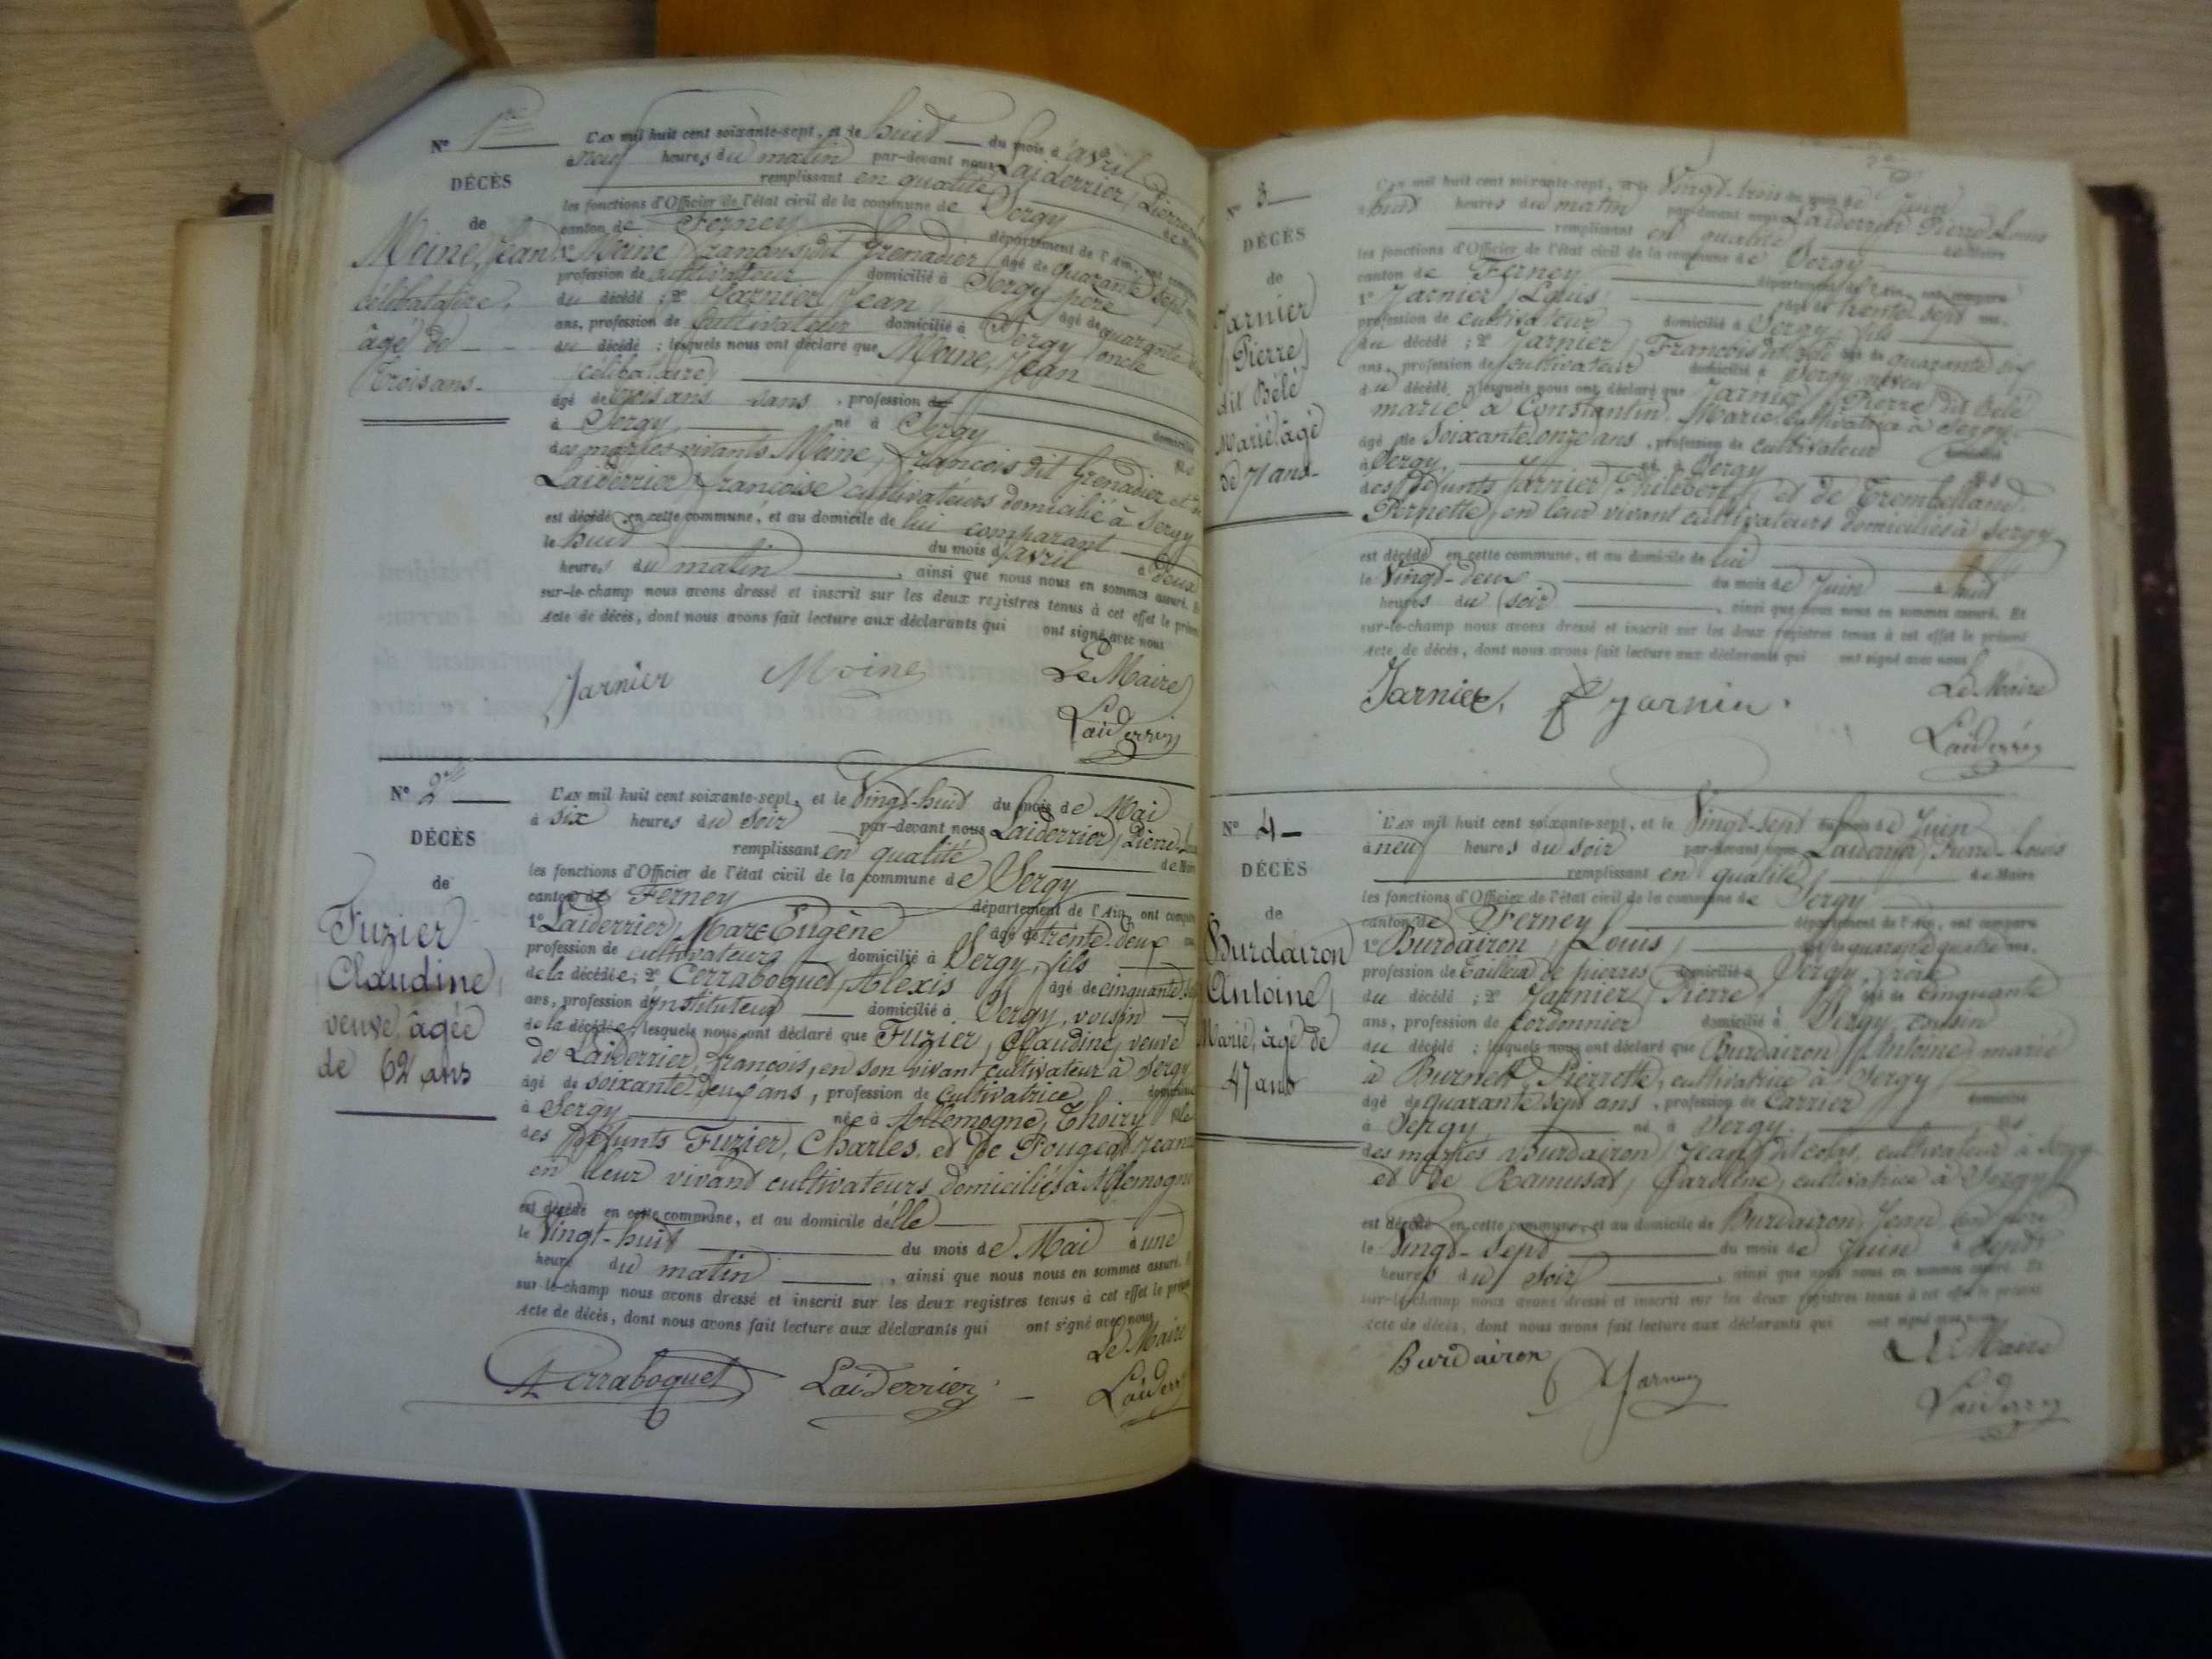 N° 1re
DÉCÈS
de
Moine, Jean
célibataire,
âgé de
trois ans.
L'AN mil huit cent soixante-sept, et le huit du mois d'avril
à neuf heures du matin par-devant nous Laiderrier, Pierre
remplissant en qualité de Maire
les fonctions d'Officier de l'état civil de la commune de Sergy
canton de Ferney département de l'Ain, ont comparu
1° Moine, François dit Grenadier, âgé de quarante sept
profession de cultivateur domicilié à Sergy, père
du décédé ; 2° Jarnier, Jean âgé de quarante
ans, profession de cultivateur domicilié à Sergy oncle
du décédé ; lesquels nous ont déclaré que Moine, Jean
célibataire,
âgé de trois ans sans , profession de domicilié
à Sergy, né à Sergy fils
des mariés vivants Moine, François dit Grenadier et de
Laiderrier, Françoise cultivateurs domicilié à Sergy
est décédé en cette commune, et au domicile de lui comparant
le huit du mois d'avril à deux
heures du matin , ainsi que nous nous en sommes assuré. Et
sur-le-champ nous avons dressé et inscrit sur les deux registres tenus à cet effet le présent
Acte de décès, dont nous avons fait lecture aux déclarants qui ont signé avec nous
Jarnier Moine Le Maire
Laiderrier
N° 2
DÉCÈS
de
Fuzier
Claudine,
veuve, âgée
de 62 ans
L'AN mil huit cent soixante-sept, et le Vingt-huit du mois de Mai
à six heures du Soir par-devant nous Laiderrier, Pierre-
remplissant en qualité de Maire
les fonctions d'Officier de l'état civil de la commune de Sergy
canton de Ferney département de l'Ain, ont comparu
1° Laiderrier, Marc Eugène âgé de trente-deux ans
profession de cultivateurs domicilié à Sergy, fils
de la décédée; 2° Cerraboquet, Alexis âgé de cinquante
ans, profession d'Instituteur domicilié à Sergy, voisin
de la décédée, lesquels nous ont déclaré que Fuzier, Claudine, veuve
de Laiderrier, François, en son vivant cultivateur à Sergy
âgé de soixante deux ans, profession de Cultivatrice domicilié
à Sergy née à Allemogne, Thoiry fille
des défunts Fuzier, Charles et de Fouget, Jeanne
en leur vivant cultivateurs domiciliés à Allemogne
est décédé en cette commune, et au domicile d'elle
le Vingt-huit du mois de Mai à une
heure du matin , ainsi que nous nous en sommes assuré. Et
sur-le-champ nous avons dressé et inscrit sur les deux registres tenus à cet effet le présent
Acte de décès, dont nous avons fait lecture aux déclarants qui ont signé avec nous
Le Maire
A Cerraboquet Laiderrier Laiderr
N° 3
DÉCÈS
de
Jarnier
Pierre,
dit Bélé
Marié, âgé
de 71 ans
L'AN mil huit cent soixante-sept, et le Vingt-trois du mois de Juin
à huit heures du matin par-devant nous Laiderrier, Pierre Louis
remplissant en qualité de Maire
les fonctions d'Officier de l'état civil de la commune de Sergy
canton de Ferney département de l'Ain, ont comparu
1° Jarnier, Louis, âgé de trente-sept ans.
profession de cultivateur domicilié à Sergy, fils
du décédé ; 2° Jarnier, François dit âgé de quarante six
ans, profession de cultivateur domicilié à Sergy, neveu
du décédé, lesquels nous ont déclaré que Jarnier, Pierre dit Bélé
marié à Constantin, Marie, cultivatrice à Sergy
âgé de Soixante onze ans, profession de cultivateur
à Sergy, né à Sergy fils
des défunts Jarnier, Philebert, et de Trembelland
Pernette, en leur vivant cultivateurs domiciliés à Sergy
est décédé en cette commune, et au domicile de lui
le Vingt-deux du mois de Juin à huit
heures du soir , ainsi que nous nous en sommes assuré. Et
sur-le-champ nous avons dressé et inscrit sur les deux registres tenus à cet effet le présent
Acte de décès, dont nous avons fait lecture aux déclarants qui ont signé avec nous
Jarnier, F Jarnier. Le Maire
Laiderrier
N° 4
DÉCÈS
de
Burdairon
Antoine,
Marié, âgé de
47 ans
L'AN mil huit cent soixante-sept, et le Vingt-sept du mois de Juin
à neuf heures du soir par-devant nous Laiderrier, Pierre-Louis
remplissant en qualité de Maire
les fonctions d'Officier de l'état civil de la commune de Sergy
canton de Ferney département de l'Ain, ont comparu
1° Burdairon, Louis, âgé de quarante quatre ans,
profession de Tailleur de pierres, domicilié à Sergy, frère
du décédé ; 2° Jarnier, Pierre, âgé de Cinquante
ans, profession de Cordonnier domicilié à Sergy, cousin
du décédé ; lesquels nous ont déclaré que Burdairon, Antoine, marié
à Burnet, Pierrette, cultivatrice à Sergy
âgé de quarante sept ans, profession de Carrier domicilié
à Sergy né à Sergy. fils
des mariés Burdairon, Jean, dit colas, cultivateur à Sergy
et de Ramusat, Caroline, cultivatrice à Sergy
est décédé en cette commune, et au domicile de Burdairon, Jean son père
le Vingt-Sept du mois de Juin à Sept
heures du Soir , ainsi que nous nous en sommes assuré. Et
sur-le-champ nous avons dressé et inscrit sur les deux registres tenus à cet effet le présent
Acte de décès, dont nous avons fait lecture aux déclarants qui ont signé avec nous
Burdairon Jarnier Le Maire
Laiderrier